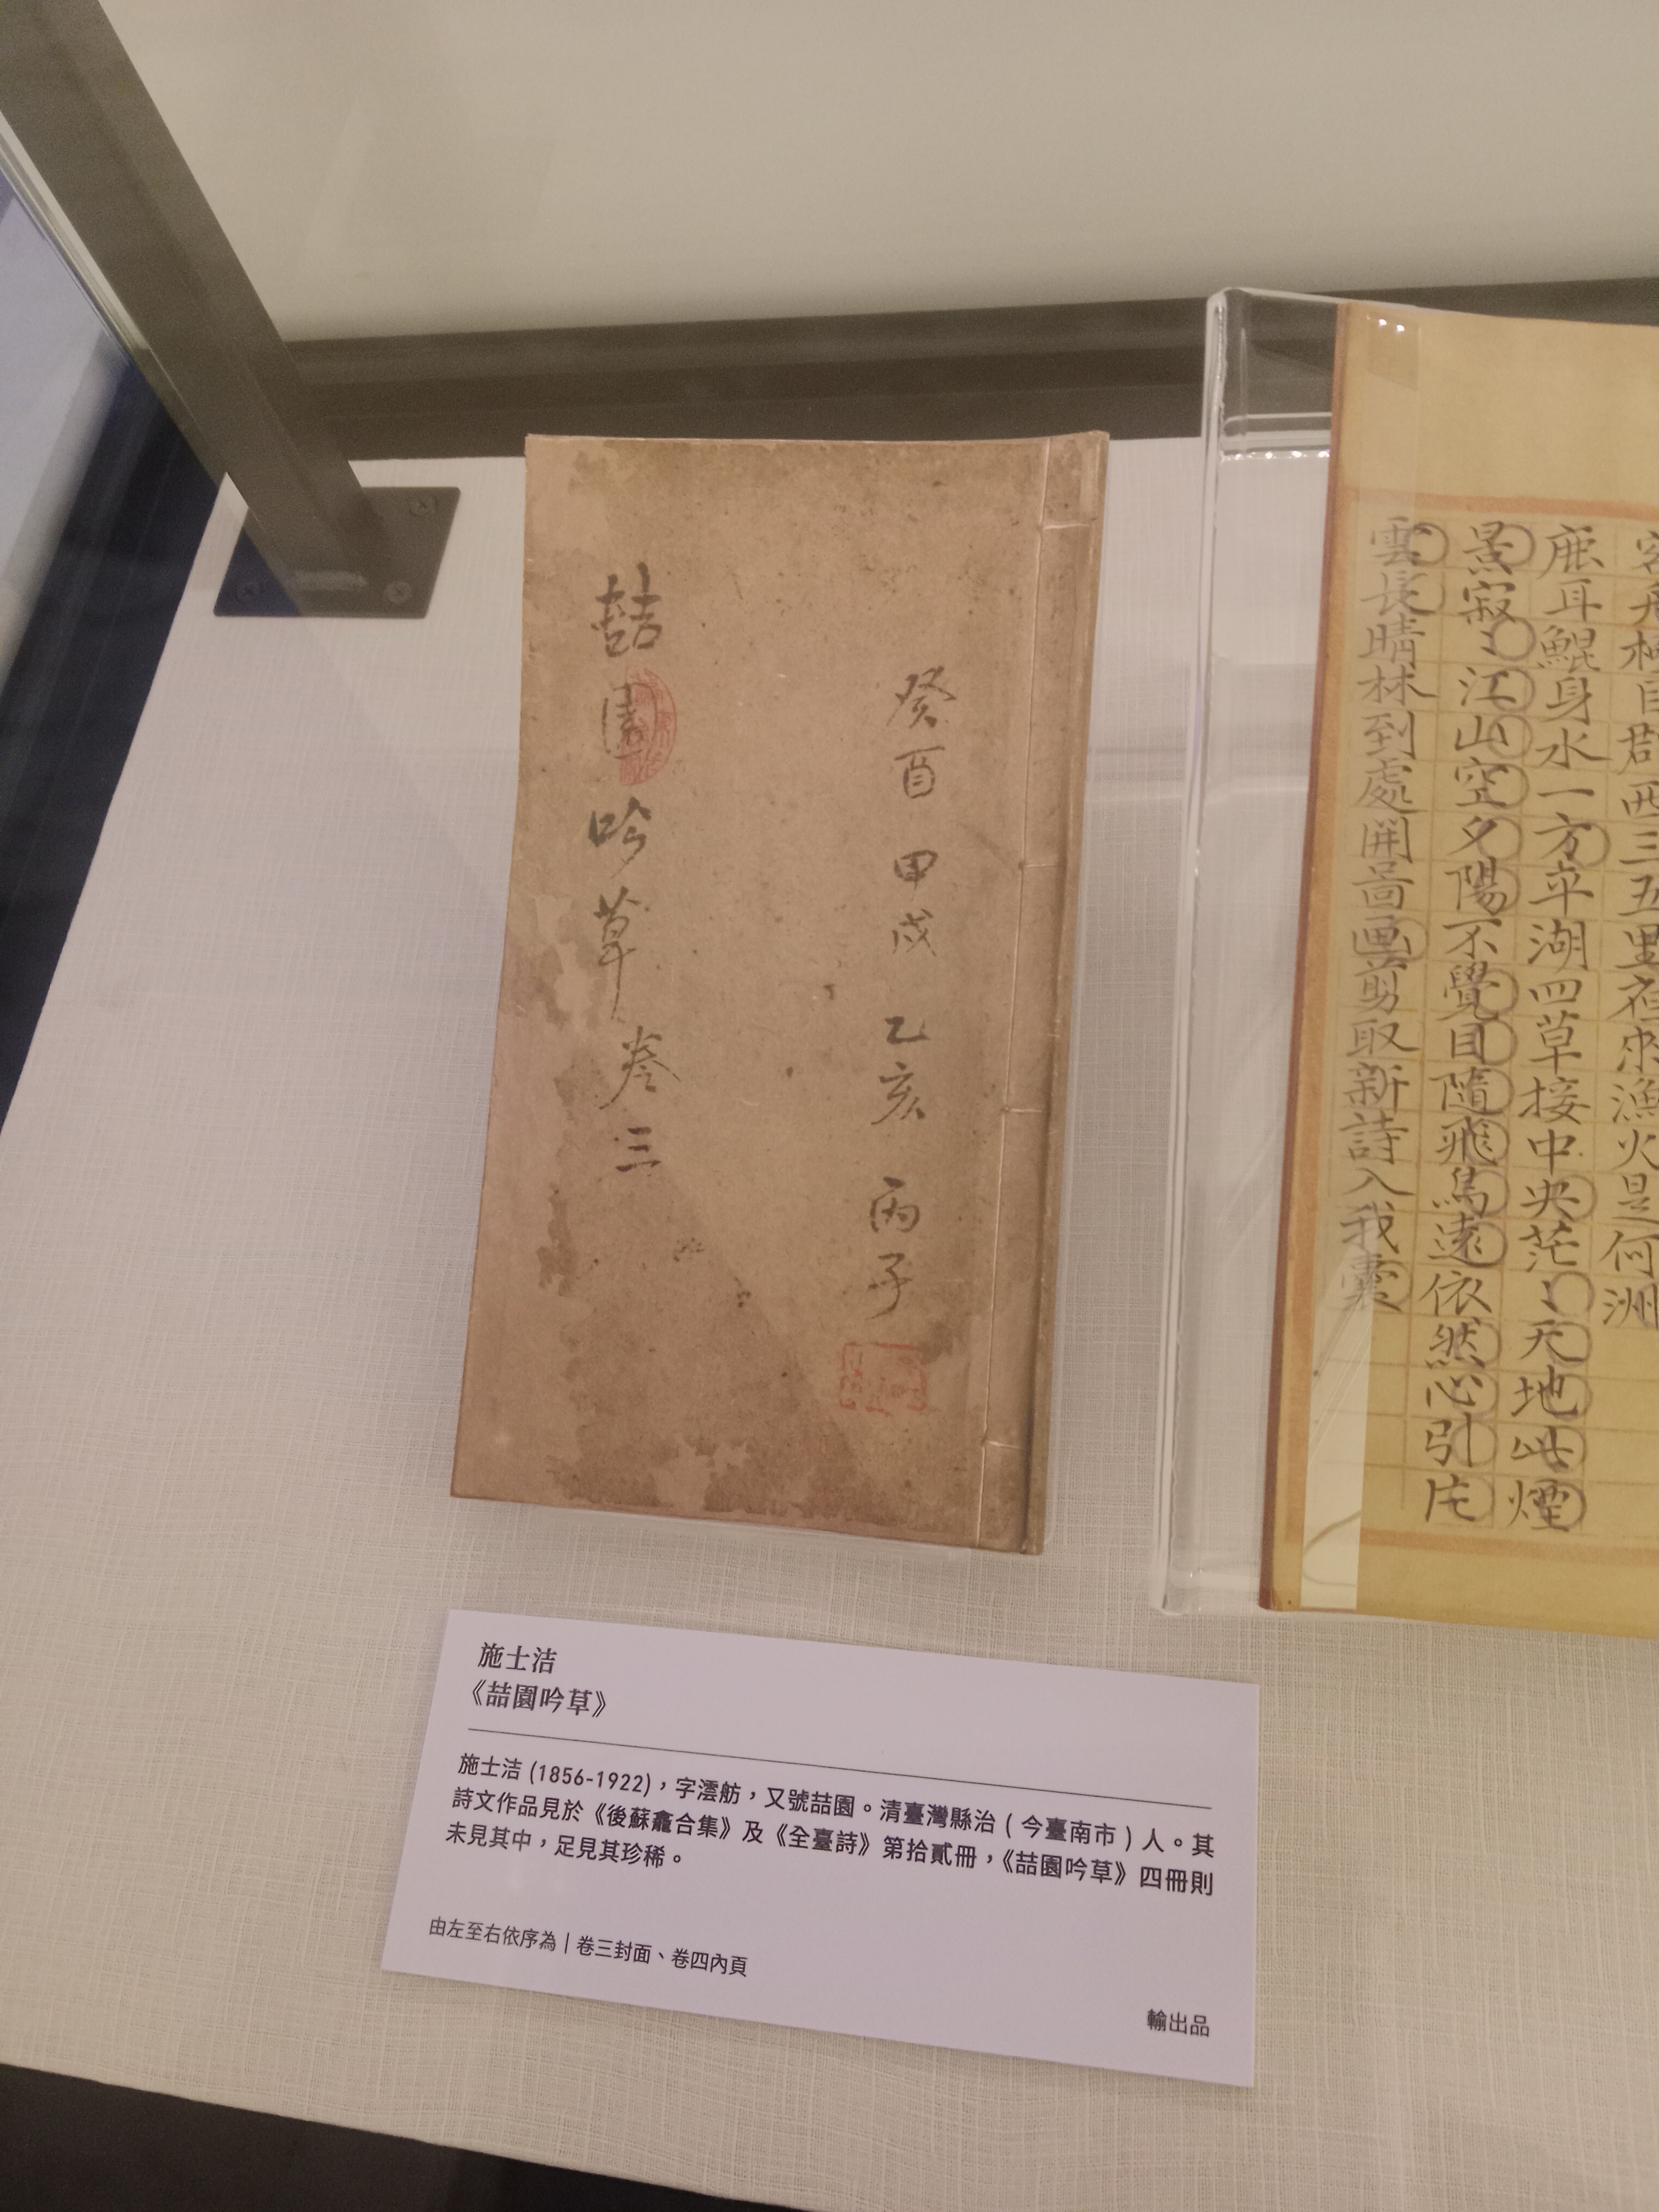 癸酉 甲戌 乙亥 丙子
喆園吟草卷三
鹿耳鯤身水一方平湖四草接中央茫〻天地此煙
景寂〻江山空夕陽不覺目隨飛鳥遠依然心引片
雲長晴林到處開啚畫剪取新詩入我囊
施士洁
《喆園吟草》
施士洁 (1856-1922)，字澐舫，又號喆園。清臺灣縣治 ( 今臺南市 ) 人。其
詩文作品見於《後蘇龕合集》及《全臺詩》第拾貳冊，《喆園吟草》四冊則
未見其中，足見其珍稀。
由左至右依序為｜卷三封面、卷四內頁
輸出品